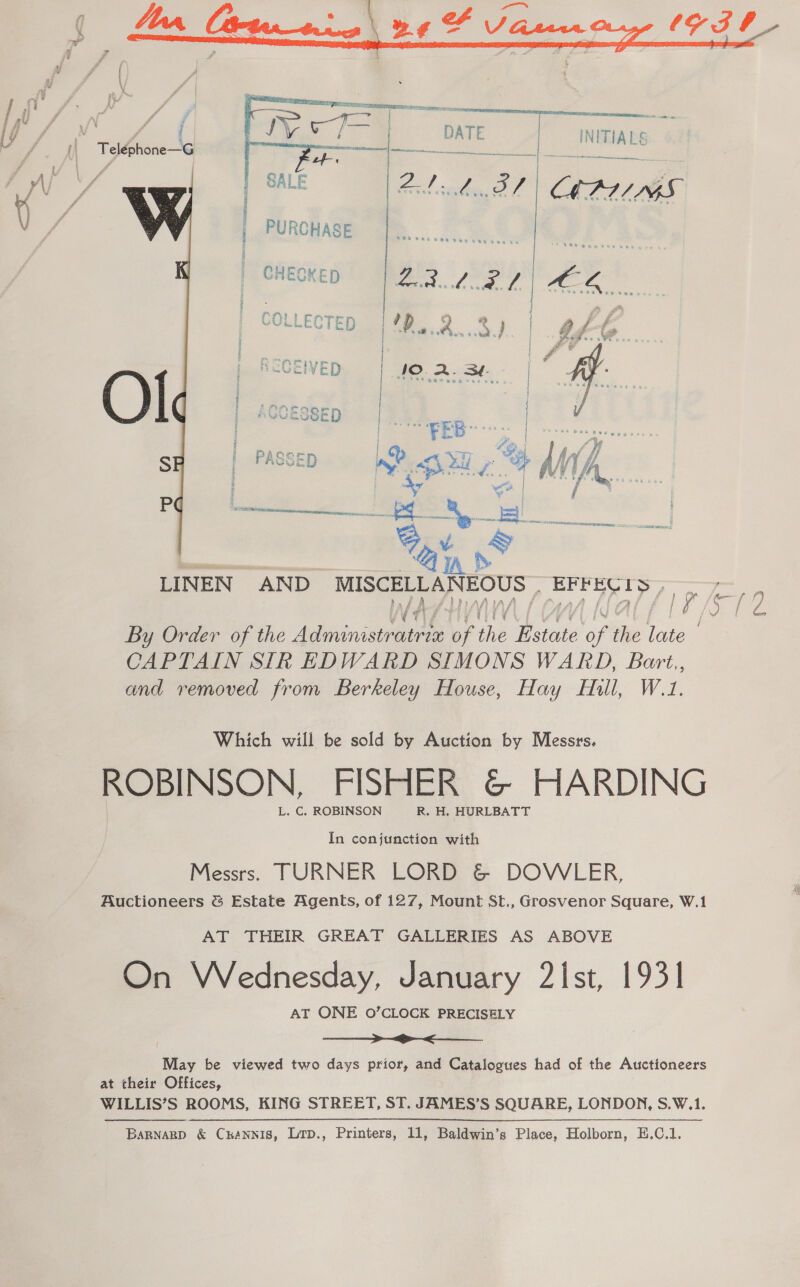 21st January 1931
DATE INITIALS
Telephone—G
SALE 21.1.31
W
PURCHASE
K
CHECKED 23.1.31
COLLECTED
RECEIVED 10.2.31
Old
ACCESSED
FEB
SP
PASSED
PO
LINEN AND MISCELLANEOUS EFFECTS,
By Order of the Administratrix of the Estate of the late
CAPTAIN SIR EDWARD SIMONS WARD, Bart.,
and removed from Berkeley House, Hay Hill, W.1.
Which will be sold by Auction by Messrs.
ROBINSON, FISHER & HARDING
L. C. ROBINSON R. H. HURLBATT
In conjunction with
Messrs. TURNER LORD & DOWLER,
Auctioneers & Estate Agents, of 127, Mount St., Grosvenor Square, W.1
AT THEIR GREAT GALLERIES AS ABOVE
On Wednesday, January 21st, 1931
AT ONE O'CLOCK PRECISELY
May be viewed two days prior, and Catalogues had of the Auctioneers
at their Offices,
WILLIS'S ROOMS, KING STREET, ST. JAMES'S SQUARE, LONDON, S.W.1.
BARNARD & CRANNIS, LTD., Printers, 11, Baldwin's Place, Holborn, E.C.1.